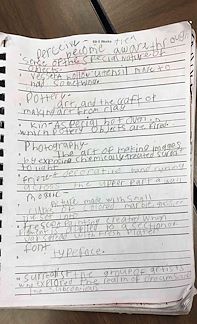 Perceive -
become aware through
sense of the special nature of
Vessel - hollow utensil made to
hold something
Pottery -
art and the craft of
making art from clay
Kiln - special hot oven in
which pottery objects are fired
Photography -
The art of making images
by exposing chemically treated surface
to light
decorative band running
across the upper part of a wall
mosaic -
picture made with small
colored marble
created when
pigment is applied to a section of
wall with fresh plaster
font
typeface.
surrealist the group of artists
who explored the realm of
the subconscious